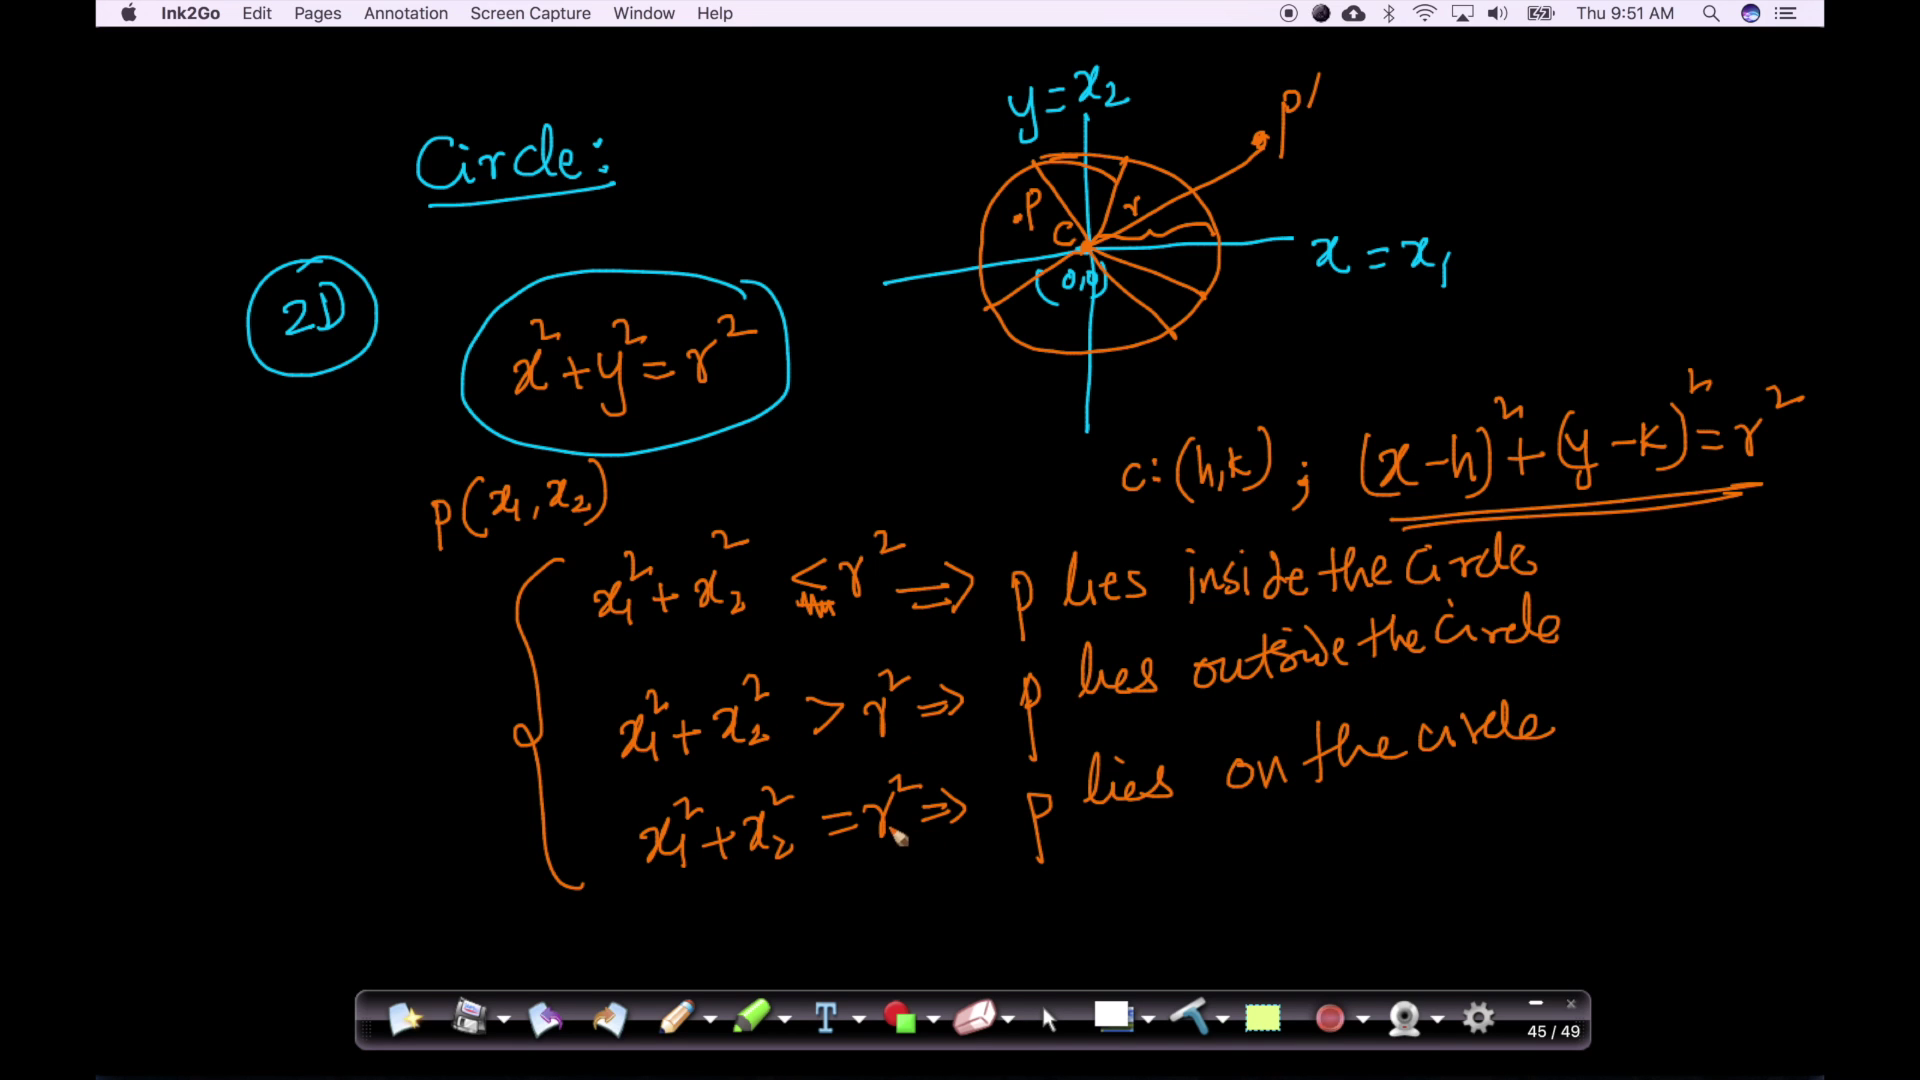 Ink2Go Edit Pages Annotation Screen Capture Window Help Thu 9:51 AM
Circle:
y = x₂
p'
.P
r
C
(0,0)
x = x₁
2D
x² + y² = r²
C: (h,k) ; (x-h)² + (y-k)² = r²
P(x₁, x₂)
x₁² + x₂² < r² => P lies inside the circle
x₁² + x₂² > r² => P lies outside the circle
x₁² + x₂² = r² => P lies on the circle
T
45 / 49